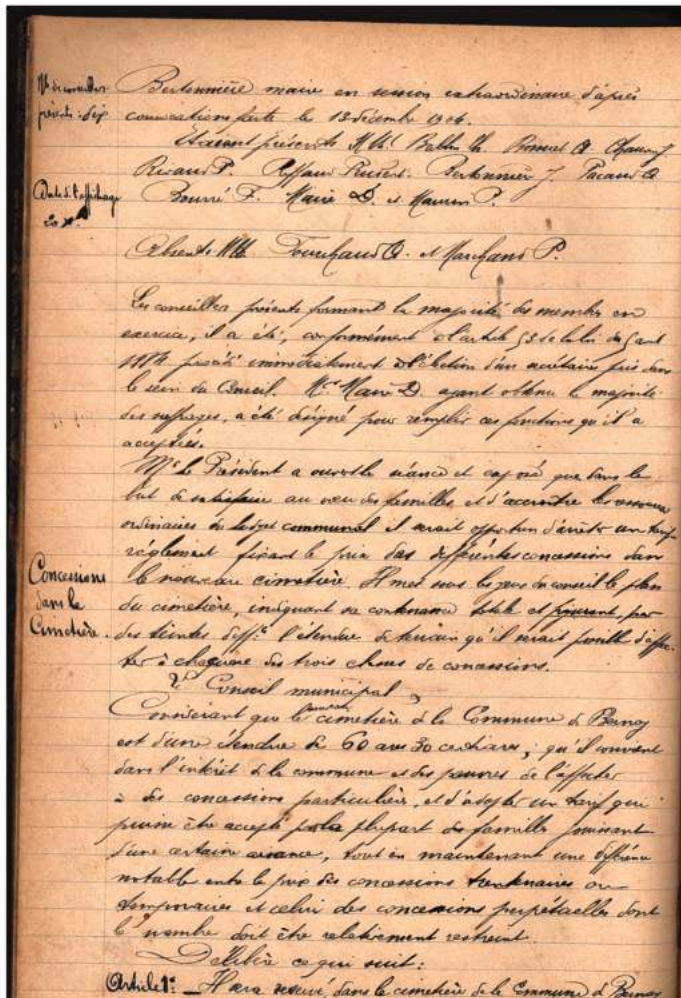 Nbre de conseillers
présents : dix
Bertonnière maire en session extraordinaire d'après
convocations faite le 13 décembre 1906.
Etaient présents MM. Ballu Ch. A. J
Rivaud P. Riffaud Bertonnière J. Pacaud A
Date de l'affichage
20 Xbre
Bourré F. Marié D. et P.
Absents MM. A. et Marchand P.
Les conseillers présents formant la majorité des membres en
exercice, il a été, conformément à l'article 53 de la loi du 5 avril
1884 procédé immédiatement à l'élection d'un secrétaire pris dans
le sein du Conseil. Mr. Marié D. ayant obtenu la majorité
des suffrages, a été désigné pour remplir ces fonctions qu'il a
acceptées.
Mr le Président a ouvert la séance et exposé que dans le
but de satisfaire au vœu des familles et d'accroître les ressources
ordinaires du budget communal il serait opportun d'arrêter un tarif
règlement fixant le prix des différentes concessions dans
le nouveau cimetière. Il met sous les yeux du conseil le plan
Concessions
dans le
Cimetière.
du cimetière, indiquant sa contenance totale et figurant, par
des teintes diff.tes l'étendue de terrain qu'il serait possible d'affec-
ter à chacune des trois classes de concessions.
Le Conseil municipal,
Considérant que le nouveau cimetière de la Commune de
est d'une étendue de 60 ares 30 centiares, qu'il convient
dans l'intérêt de la commune et des pauvres de l'affecter
à des concessions particulières, et d'adopter un tarif qui
puisse être accepté par la plupart des familles jouissant
d'une certaine aisance, tout en maintenant une différence
notable entre le prix des concessions trentenaires ou
temporaires et celui des concessions perpétuelles dont
le nombre doit être relativement restreint.
Délibère ce qui suit :
Article 1er _ Il sera réservé, dans le cimetière de la Commune de